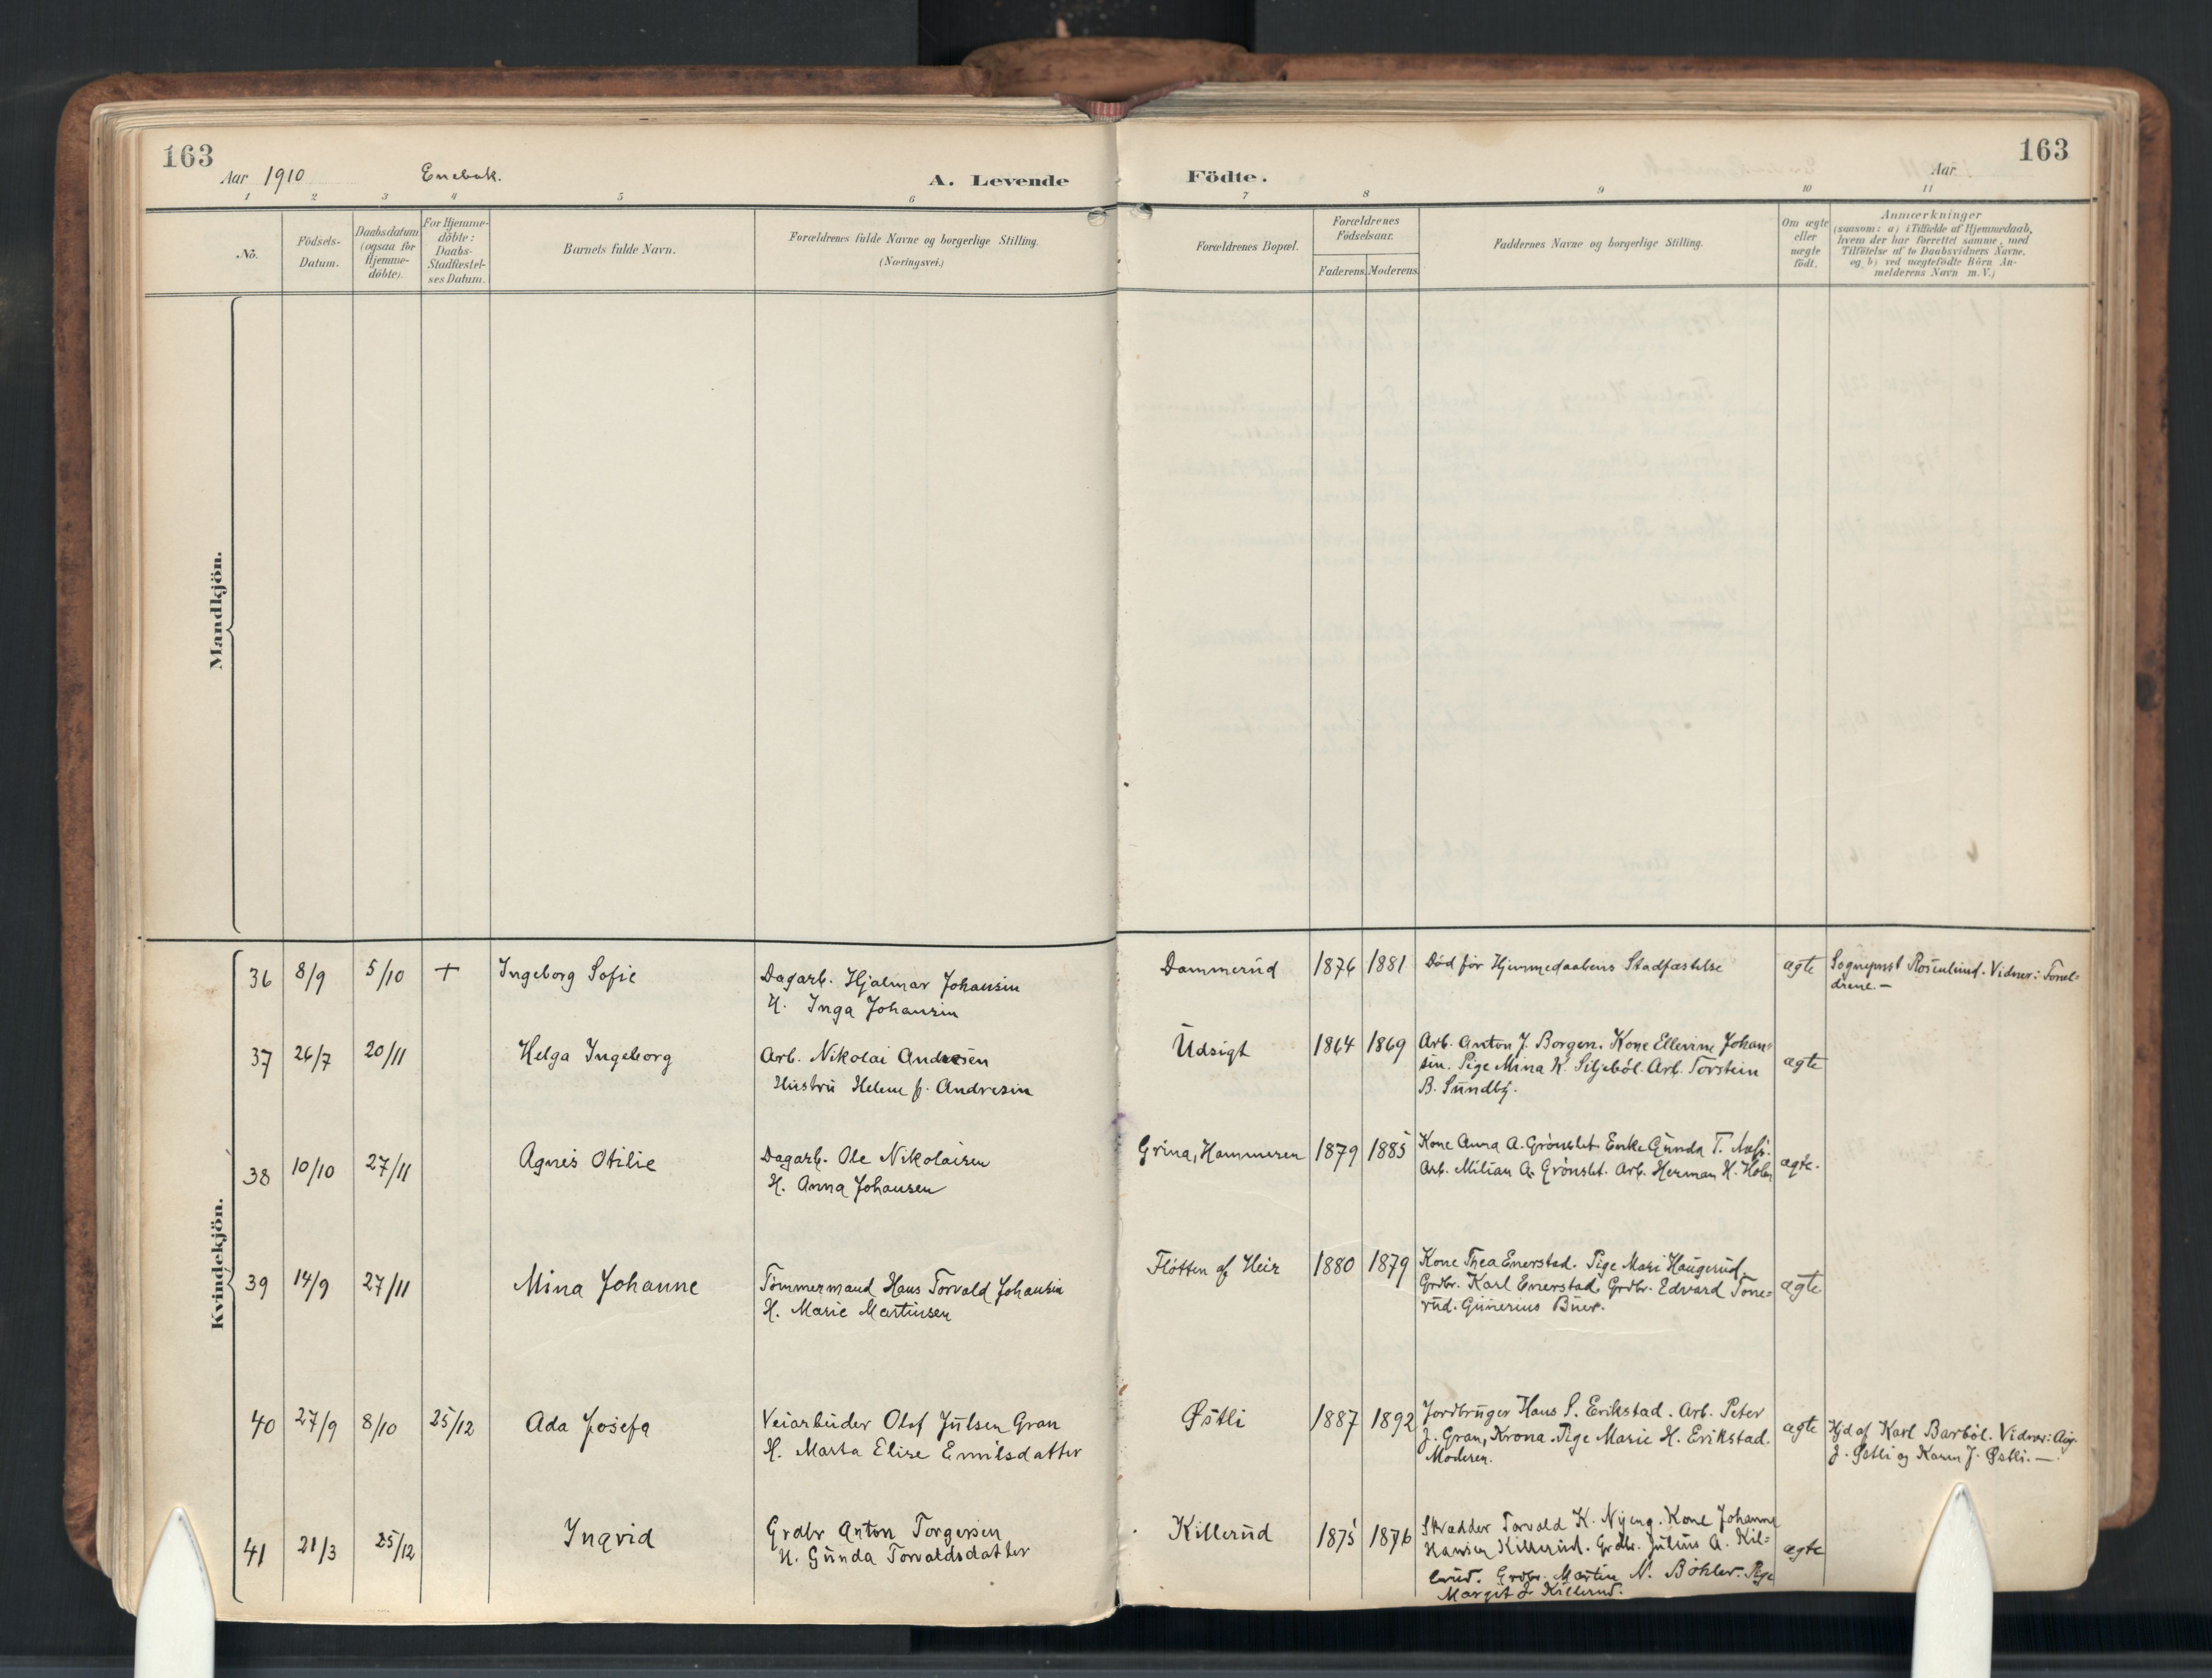 163
Aar 1910 Enebak. A. Levende
1 2 3 4 5 6
No. Födsels-Datum. Daabsdatum (ogsaa for Hjemme-döbte). For Hjemme-döbte: Daabs-Stadfæstel-ses Datum. Barnets fulde Navn. Forældrenes fulde Navne og borgerlige Stilling. (Næringsvei.)
Mandkjön.
Kvindekjön.
36 8/9 5/10 + Ingeborg Sofie Dagarb. Hjalmar Johansen
H. Inga Johansen
37 26/7 20/11 Helga Ingeborg Arb. Nikolai Andresen
Hustru Helene f. Andresen
38 10/10 27/11 Agnes Otilie Dagarb. Ole Nikolaisen
H. Anna Johansen
39 14/9 27/11 Mina Johanne Tömmermand Hans Torvald Johansen
H. Marie Martinsen
40 27/9 8/10 25/12 Ada Josefa Veiarbeider Olof Julsen Gran
H. Marta Elise Emilsdatter
41 21/3 25/12 Ingvid Grdbr Anton Torgersen
H. Gunda Torvaldsdatter
163
Födte. Aar
7 8 9 10 11
Forældrenes Bopæl. Forældrenes Födselsaar. Faderens. Moderens. Faddernes Navne og borgerlige Stilling. Om ægte eller uægte födt. Anmærkninger
(saasom: a) i Tilfælde af Hjemmedaab,
hvem der har forrettet samme, med
Tilföielse af to Daabsvidners Navne.
og b) ved uægtefödte Börn An-
melderens Navn m. V.)
Dammerud 1876 1881 Død før Hjemmedaabens Stadfæstelse ægte Sogneprest Rosenlund. Vidner: Foræl=
drene. —
Udsigt 1864 1869 Arb. Anton J. Borgen. Kone Ellevine Johan=
sen. Pige Mina K. Siljeböl. Arb. Torstein ægte
B. Sundby.
Grina, Hammeren 1879 1885 Kone Anna A. Grönslet. Enke Gunda T. Næs.
Arb. Milian A. Grönslet. Arb. Herman H. ægte.
Flötten af Heir 1880 1879 Kone Thea Enerstad. Pige Mari Haugerud.
Grdbr. Karl Enerstad. Grdbr. Edvard Tone= ægte
rud. Gunerius Buer.
Østli 1887 1892 Jordbruger Hans S. Erikstad. Arb. Peter
J. Gran, Krona. Pige Marie H. Erikstad. ægte Hjd af Karl Barböl. Vidner: Aug.
Moderen. J. Østli og Karen J. Østli. —
Killerud 1875 1876 Skrædder Torvald K. Nyeng. Kone Johanne
Hansen Killerud. Grdbr. Julius A. Kil= ægte
lerud. Grdbr. Martin N. Böhler. Pige
Margit J. Killerud.